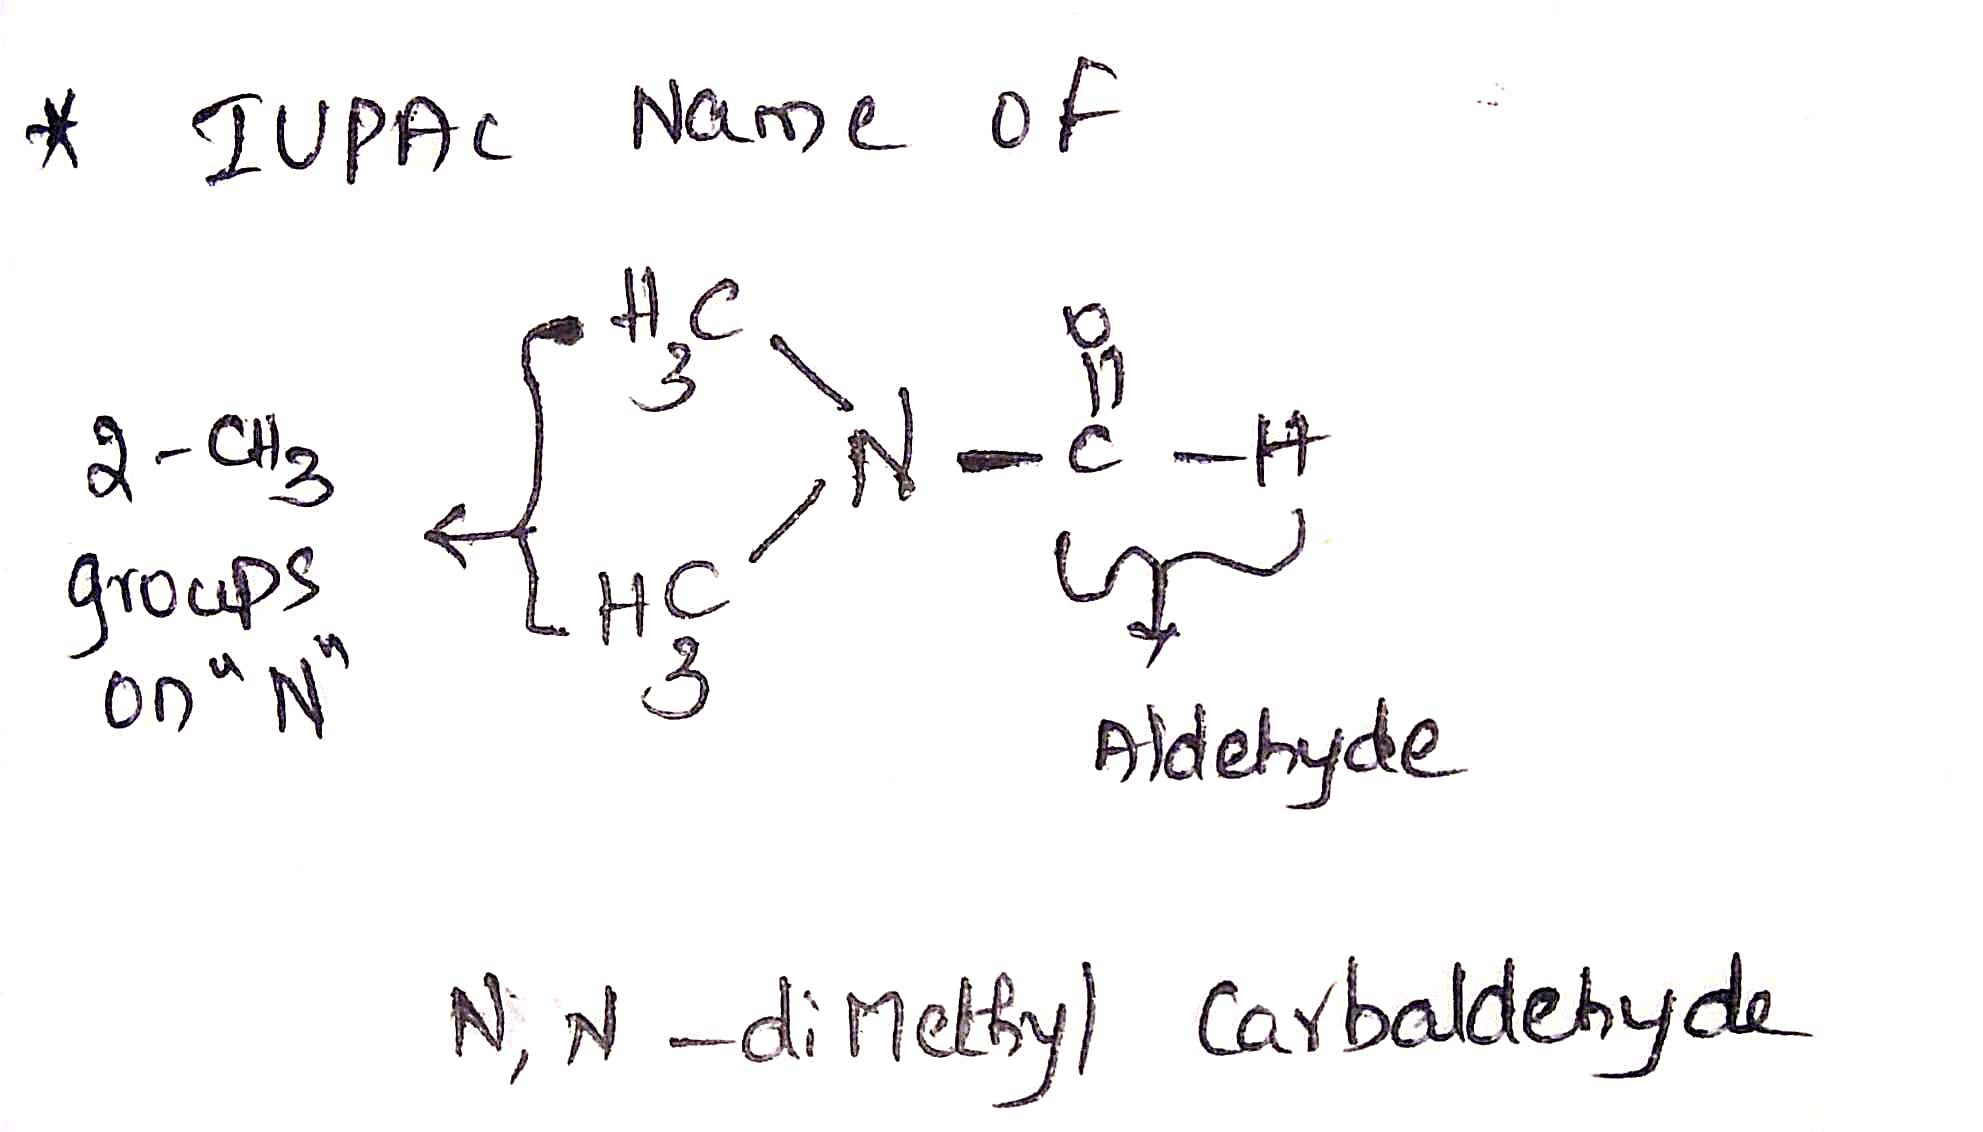 * IUPAC Name of
H3C
O
2-CH3
N - C - H
groups
on "N"
H3C
Aldehyde
N, N - diMethyl Carbaldehyde